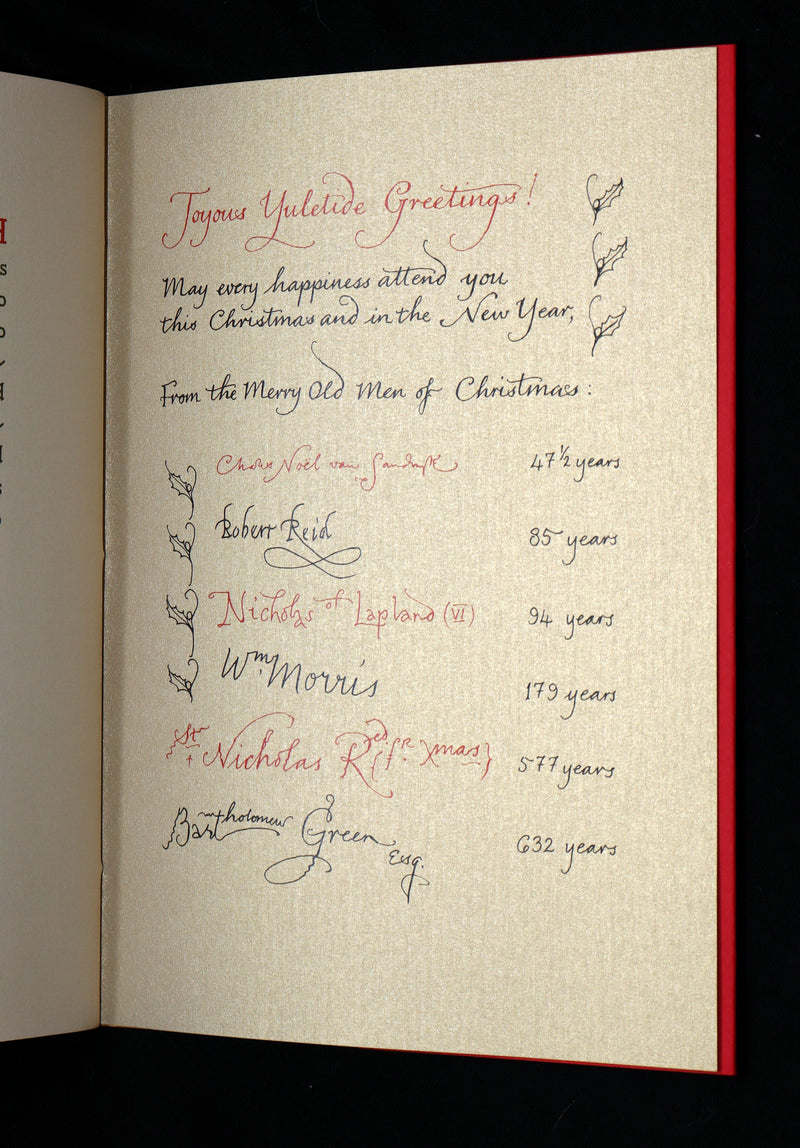 H
s
o
o
d
l
s
Joyous Yuletide Greetings!
May every happiness attend you
this Christmas and in the New Year,
From the Merry Old Men of Christmas:
Noël van 47 1/2 years
Robert Reid 85 years
Nicholas of Lapland (VI) 94 years
Wm. Morris 179 years
St. Nicholas R{ed. fr. Xmas} 577 years
Bartholomew Green Esq. 632 years